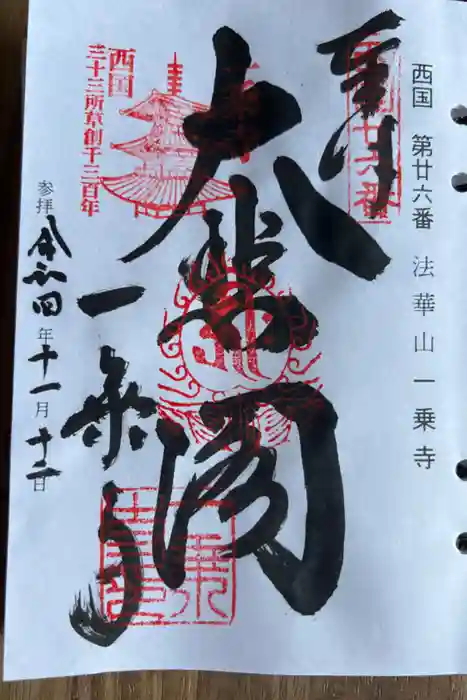 西国 第廿六番 法華山一乗寺
奉拝
大悲閣
一乗寺
西国
三十三所草創千三百年
参拝 令和四年十一月十二日